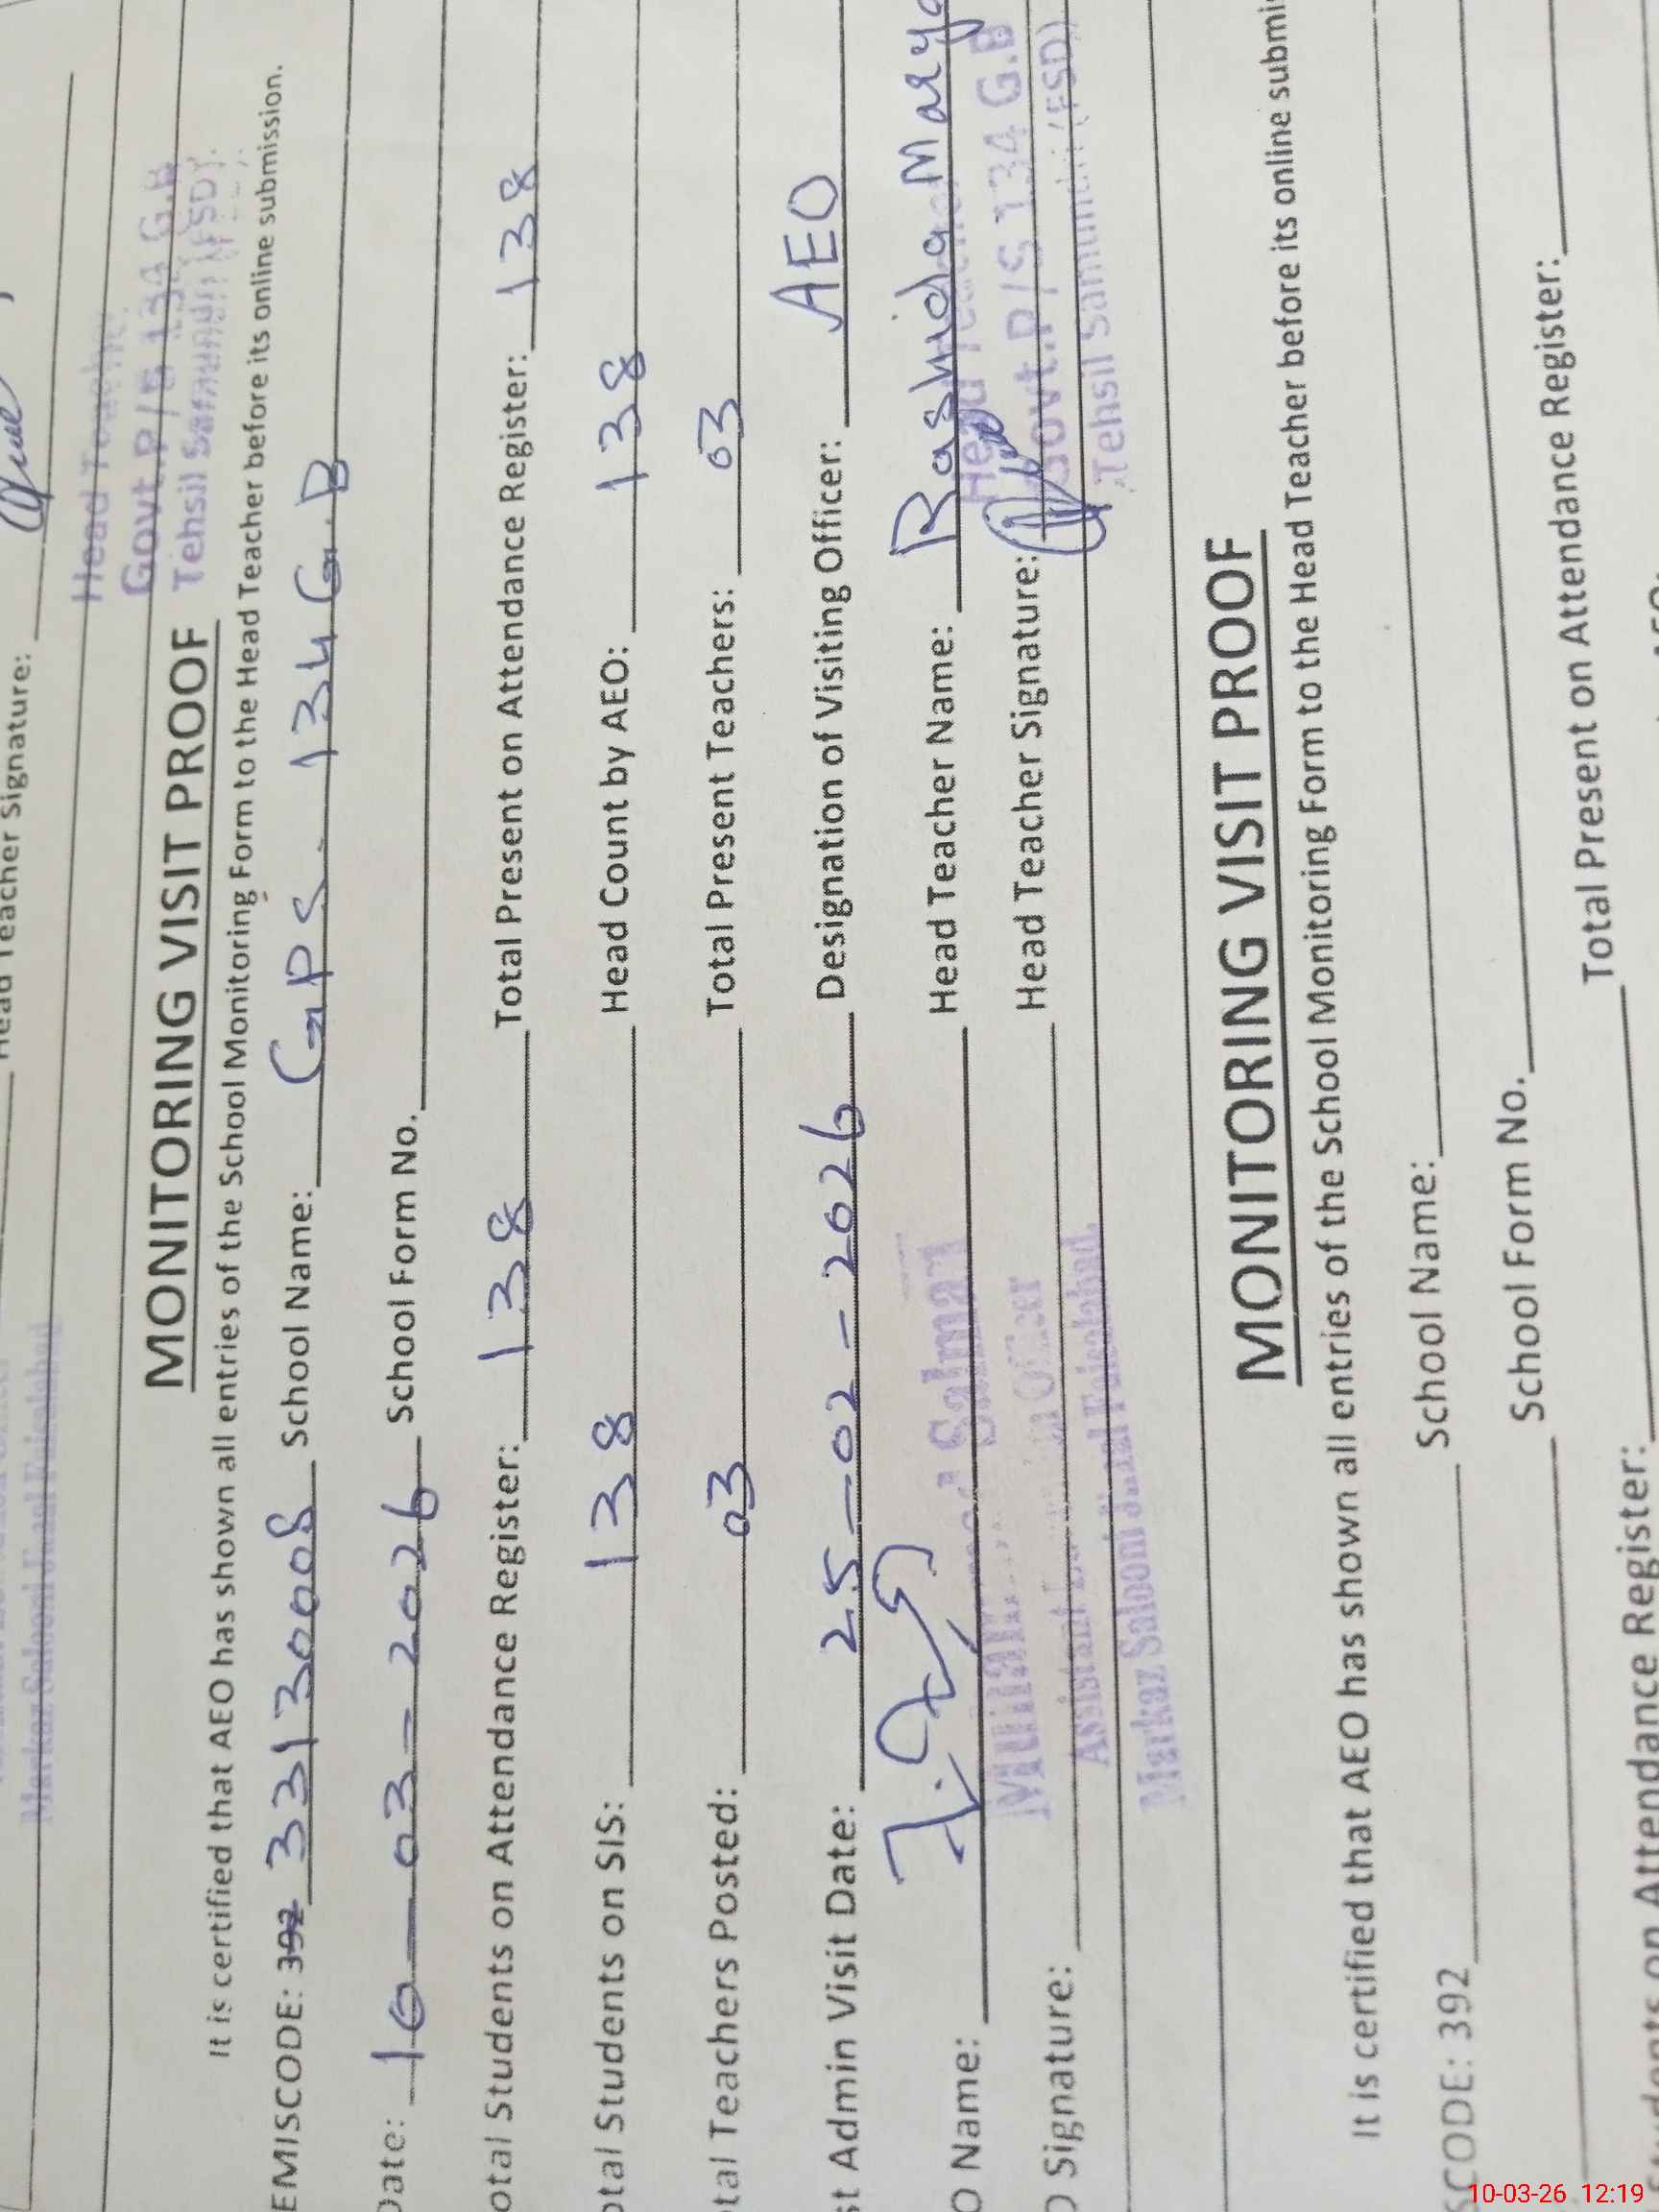 Head Teacher Signature:
Markaz Salooni Jhaal Faisalabad
Head Teacher
Govt.P/S 134 G.B
Tehsil Samundri (FSD).
MONITORING VISIT PROOF
It is certified that AEO has shown all entries of the School Monitoring Form to the Head Teacher before its online submission.
EMISCODE: 392 33130008 School Name: GPS. 134 G.B
Date: 10-03-2026 School Form No.
otal Students on Attendance Register: 138 Total Present on Attendance Register: 138
otal Students on SIS: 138 Head Count by AEO: 138
tal Teachers Posted: 03 Total Present Teachers: 03
st Admin Visit Date: 25-02-2026 Designation of Visiting Officer: AEO
O Name: Head Teacher Name: Rashida Marya
Salman
O Signature: Head Teacher Signature:
Head Teacher
Govt.P/S 134 G.B
Tehsil Samundri (FSD)
Markaz Salooni Jhaal Faisalabad.
MONITORING VISIT PROOF
It is certified that AEO has shown all entries of the School Monitoring Form to the Head Teacher before its online submi
SCODE: 392 School Name:
School Form No.
Students on Attendance Register: Total Present on Attendance Register:
10-03-26 12:19